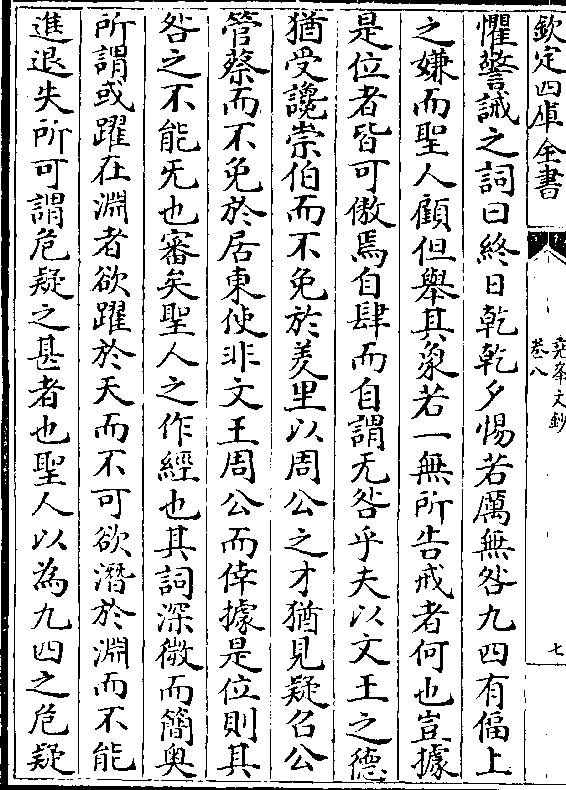 欽定四庫全書
堯峯文鈔
卷八
七
懼警誡之詞曰終日乾乾夕惕若厲無咎九四有偪上
之嫌而聖人顧但舉其象若一無所告戒者何也豈據
是位者皆可傲焉自肆而自謂无咎乎夫以文王之德
猶受讒崇伯而不免於羑里以周公之才猶見疑召公
管蔡而不免於居東使非文王周公而倖據是位則其
咎之不能旡也審矣聖人之作經也其詞深微而簡奥
所謂或躍在淵者欲躍於天而不可欲潛於淵而不能
進退失所可謂危疑之甚者也聖人以為九四之危疑